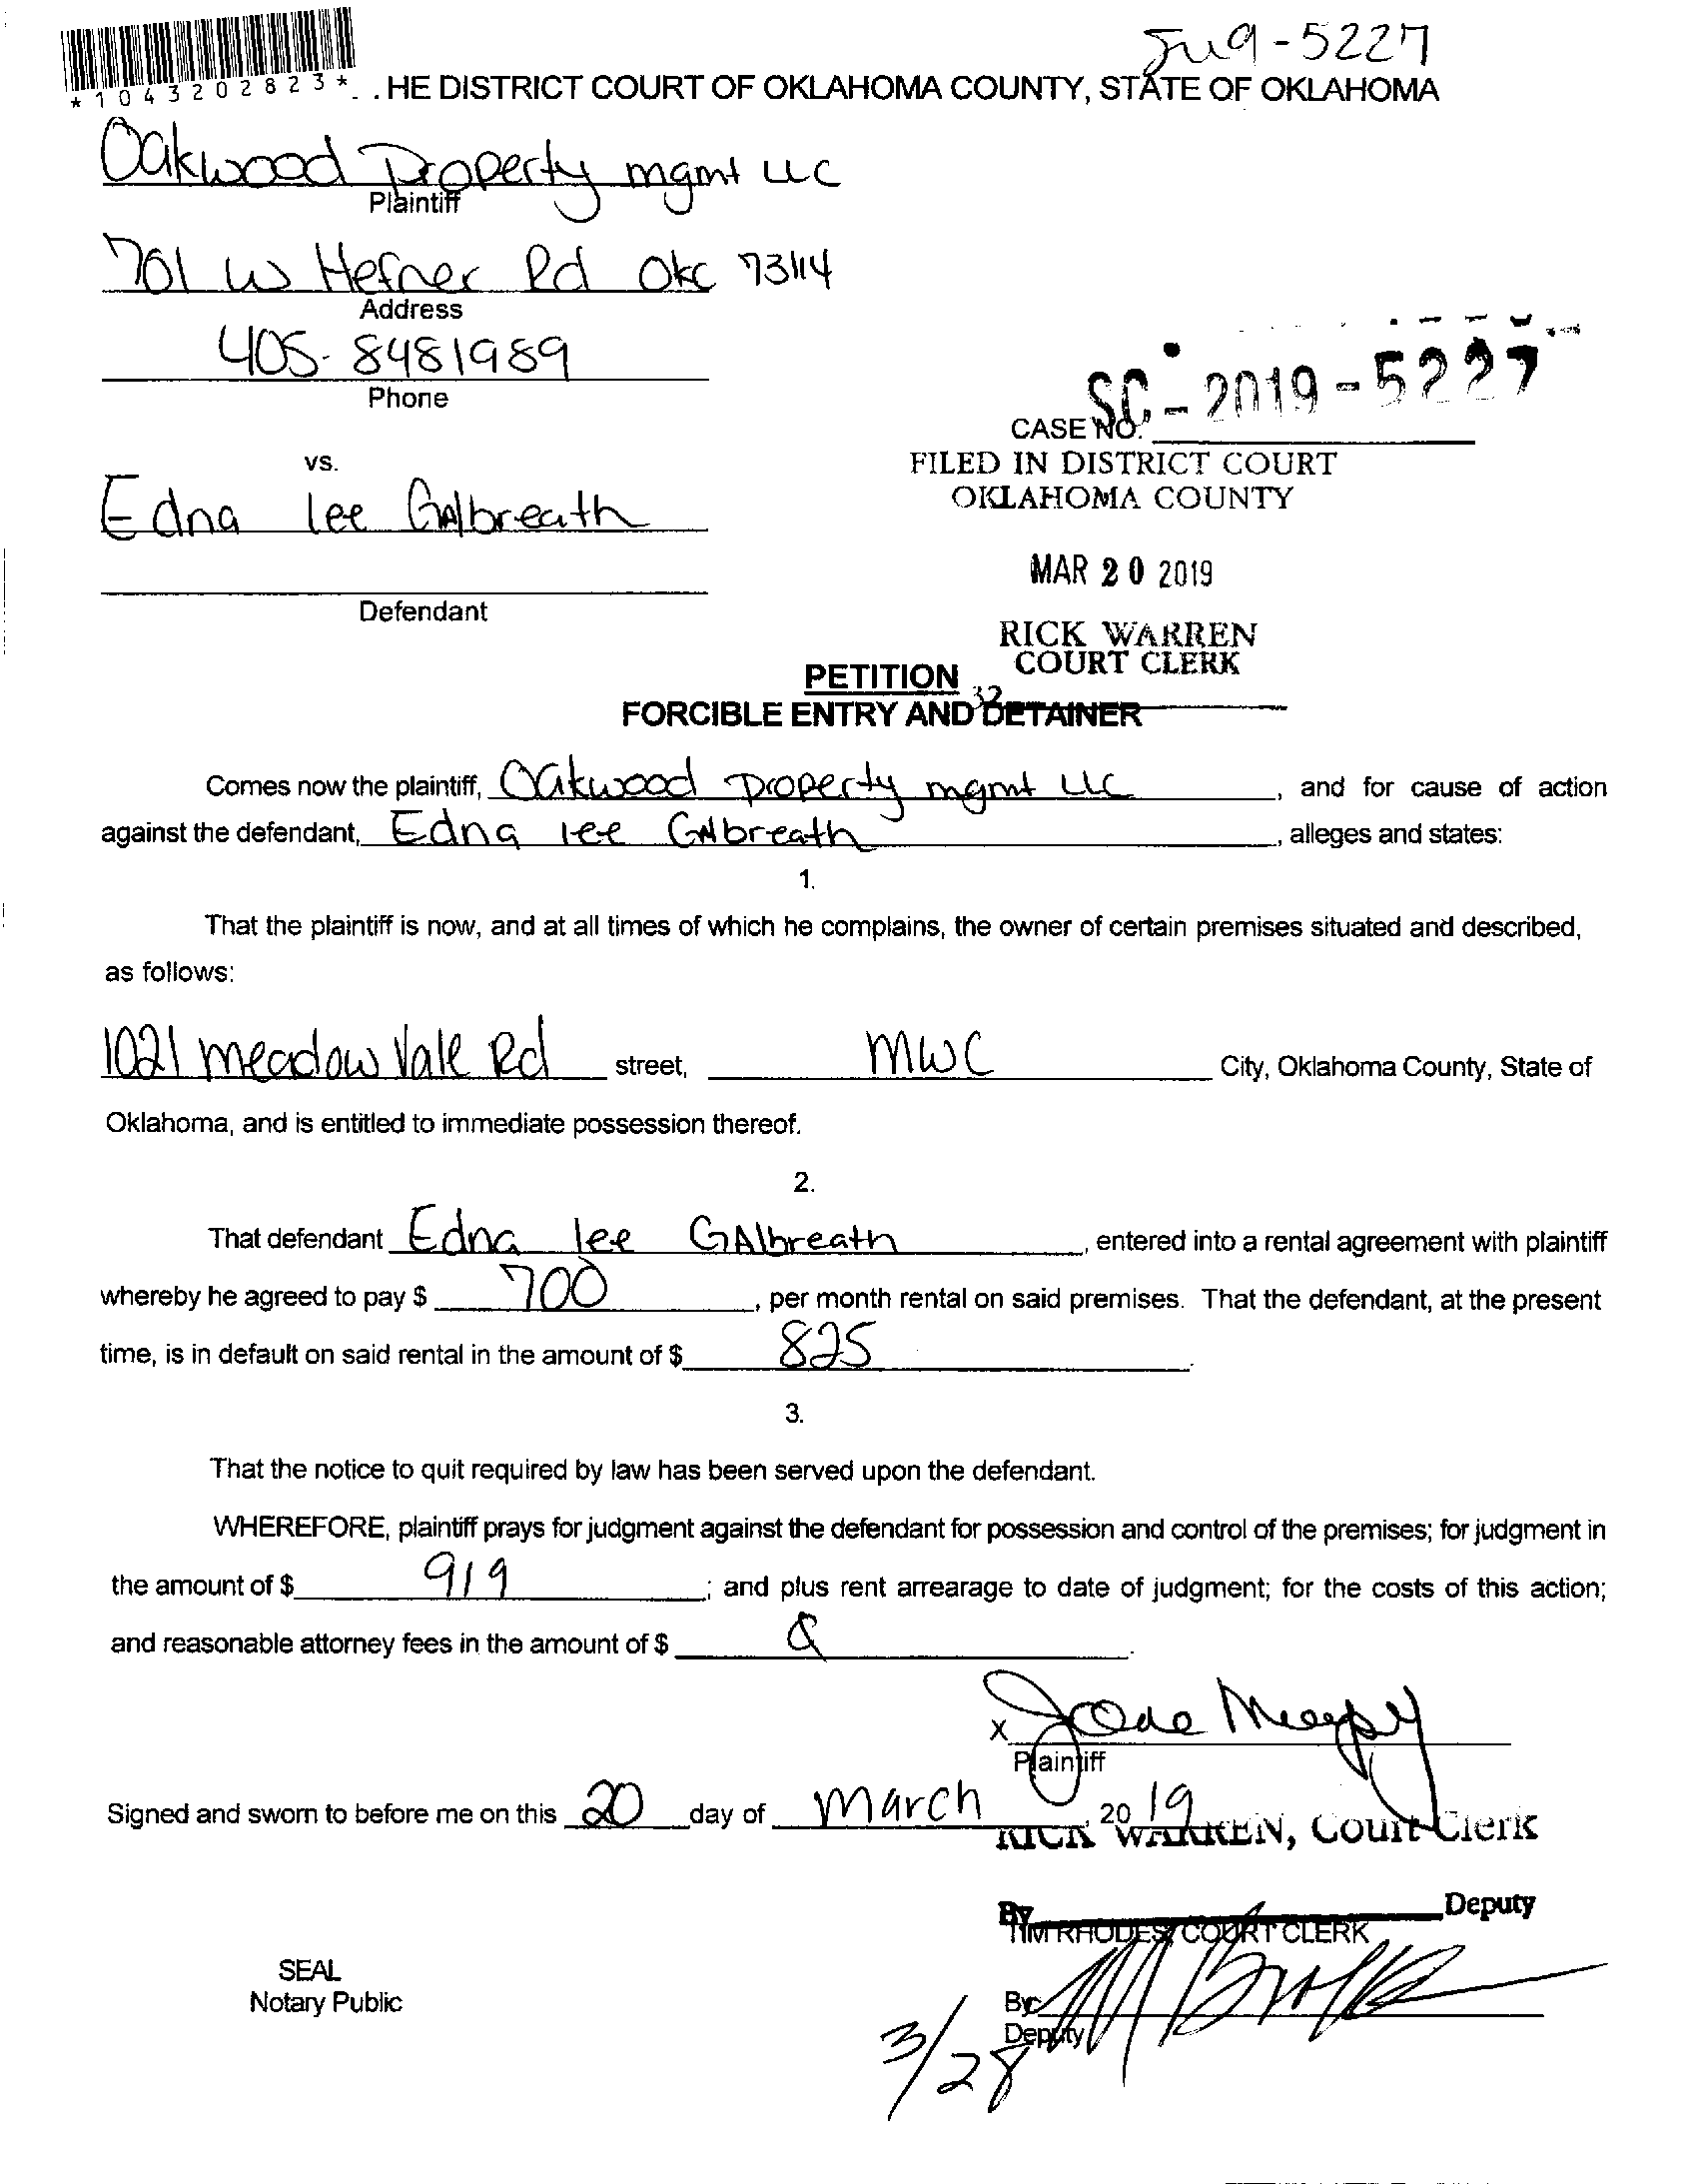 *1043202823*
-5227
HE DISTRICT COURT OF OKLAHOMA COUNTY, STATE OF OKLAHOMA
Oakwood Property mgmt LLC
Plaintiff
701 W Hefner Rd Okc 73114
Address
405-8481989
Phone
CASE NO. SC-2019-5227
vs.
FILED IN DISTRICT COURT
OKLAHOMA COUNTY
Edna lee GAlbreath
MAR 20 2019
Defendant
RICK WARREN
COURT CLERK
PETITION
32
FORCIBLE ENTRY AND DETAINER
Comes now the plaintiff, Oakwood Property mgmt LLC, and for cause of action
against the defendant, Edna lee GAlbreath, alleges and states:
1.
That the plaintiff is now, and at all times of which he complains, the owner of certain premises situated and described,
as follows:
1021 meadow Vale Rd street, MWC City, Oklahoma County, State of
Oklahoma, and is entitled to immediate possession thereof.
2.
That defendant Edna lee GAlbreath, entered into a rental agreement with plaintiff
whereby he agreed to pay $ 700, per month rental on said premises. That the defendant, at the present
time, is in default on said rental in the amount of $ 825.
3.
That the notice to quit required by law has been served upon the defendant.
WHEREFORE, plaintiff prays for judgment against the defendant for possession and control of the premises; for judgment in
the amount of $ 919; and plus rent arrearage to date of judgment; for the costs of this action;
and reasonable attorney fees in the amount of $ .
X
Plaintiff
Signed and sworn to before me on this 20 day of March, 2019
RICK WARREN, Court Clerk
By Deputy
TIM RHODES, COURT CLERK
SEAL
Notary Public
By:
Deputy
3/28